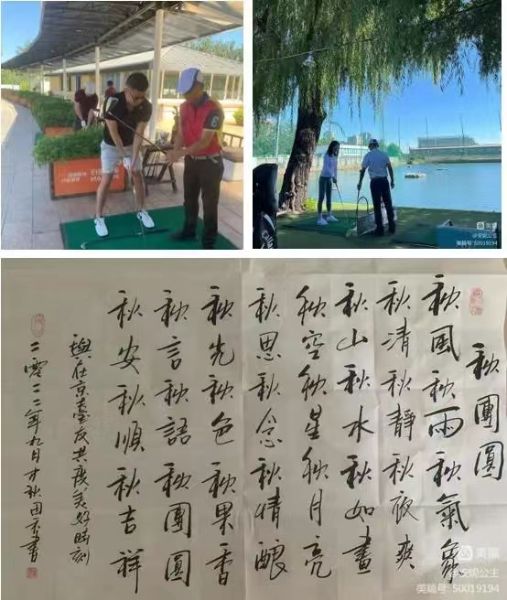 美篇
@安妮公主
美篇号: 50019194
秋團圓
秋風秋雨秋氣象
秋清秋靜秋夜爽
秋山秋水秋如畫
秋空秋星秋月亮
秋思秋念秋情釀
秋光秋色秋果香
秋言秋語秋團圓
秋安秋順秋吉祥
與在京臺友共度美好時刻
二零二二年九月才秋田書
美篇
@安妮公主
美篇号: 50019194